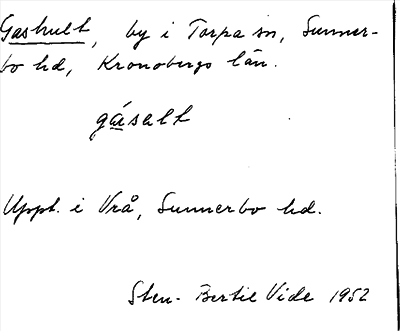 Gashult, by i Torpa sn, Sunner-
bo hd, Kronobergs län.
gásalt
Uppt. i Vrå, Sunnerbo hd.
Sten-Bertil Vide 1952